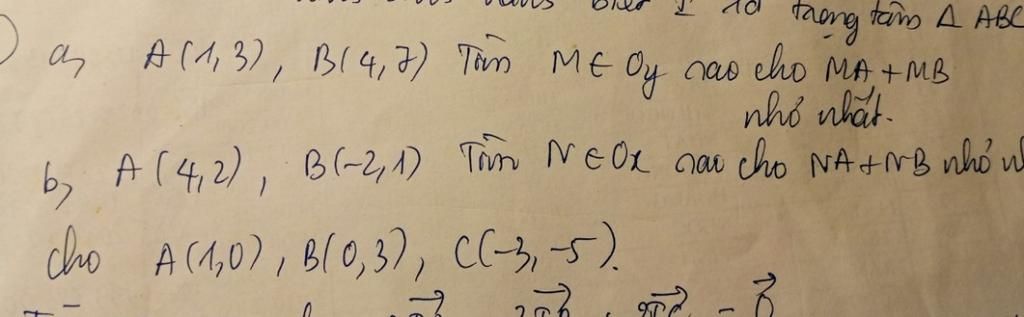 biết I là trọng tâm Δ ABC
a, A(1,3), B(4,7) Tìm M ∈ Oy sao cho MA + MB
nhỏ nhất.
b, A(4,2), B(-2,1) Tìm N ∈ Ox sao cho NA + NB nhỏ
cho A(1,0), B(0,3), C(-3,-5).